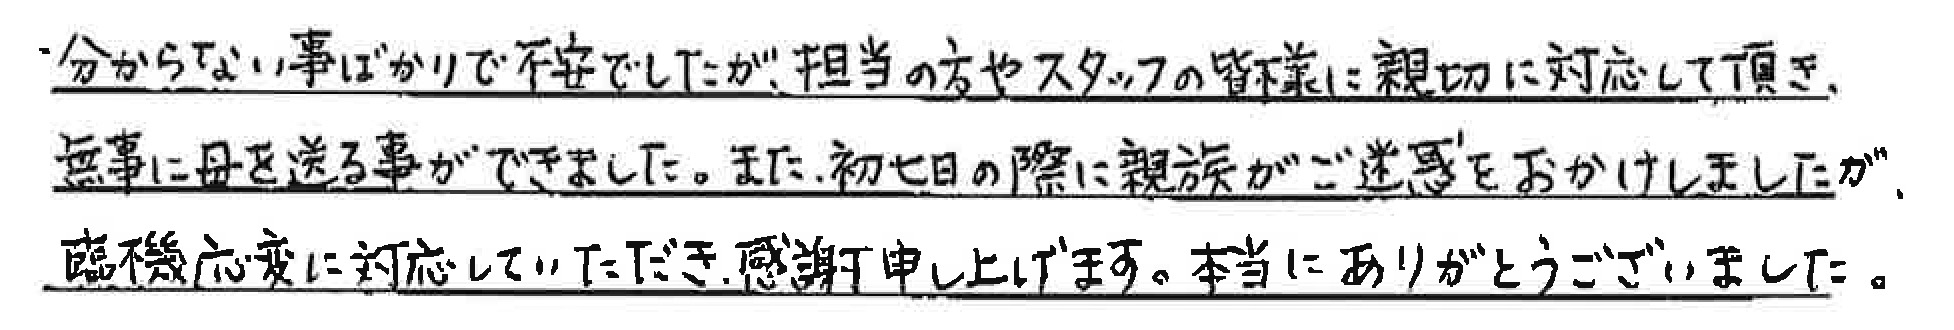 分からない事ばかりで不安でしたが、担当の方やスタッフの皆様に親切に対応して頂き、
無事に母を送る事ができました。また、初七日の際に親族がご迷惑をおかけしましたが、
臨機応変に対応していただき、感謝申し上げます。本当にありがとうございました。